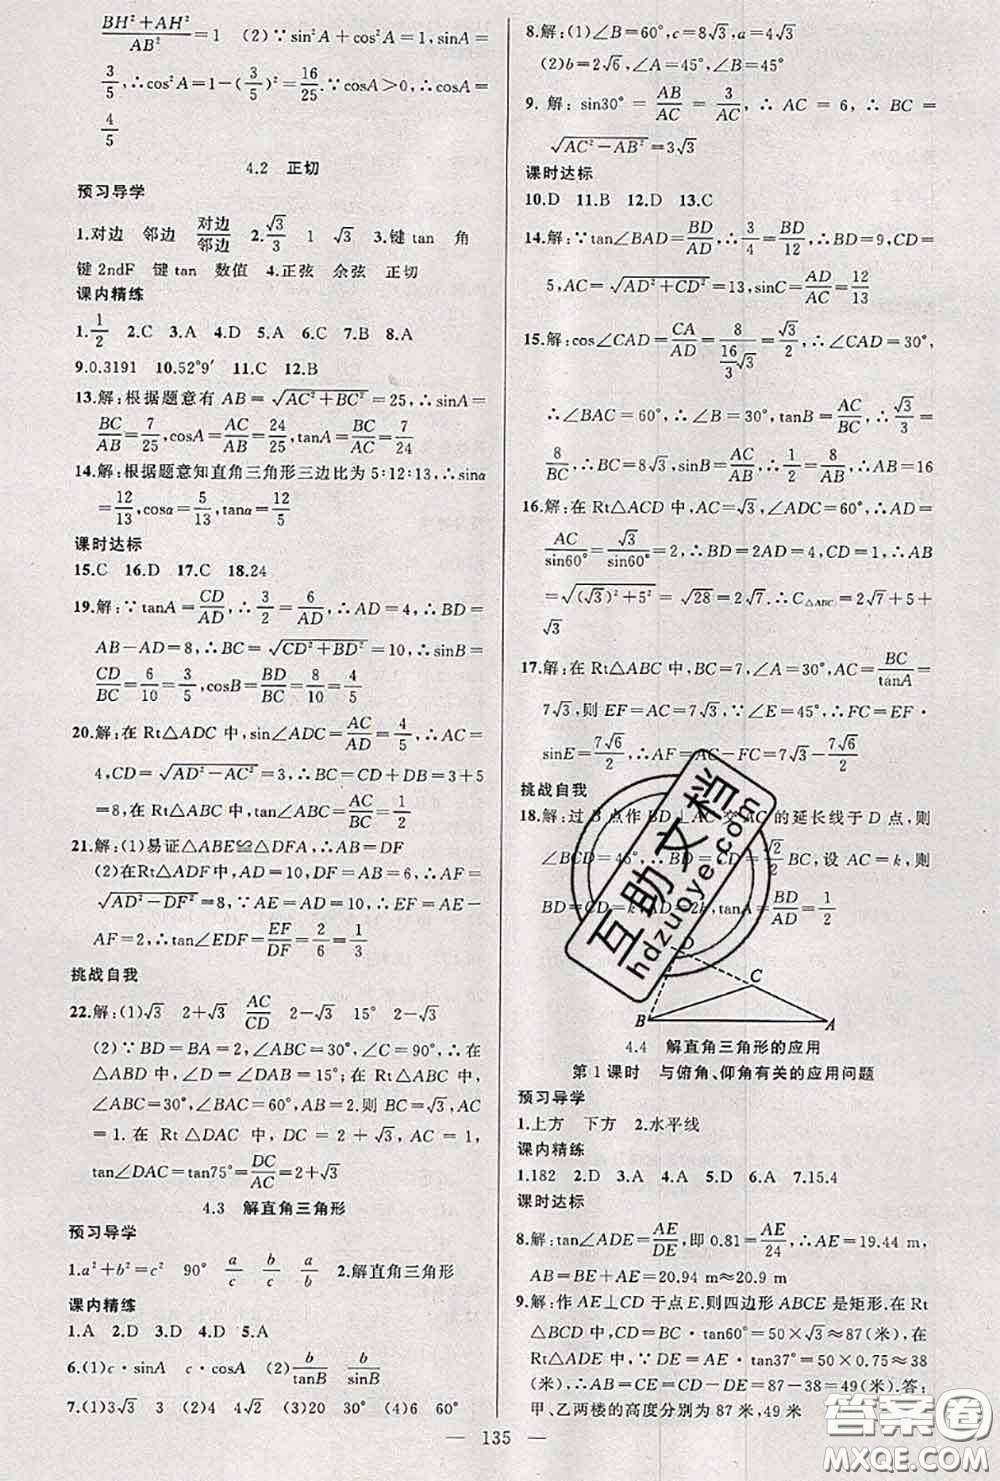 BH²+AH²/AB²=1 (2)∵sin²A+cos²A=1,sinA=
3/5,∴cos²A=1-(3/5)²=16/25.∵cosA>0,∴cosA=
4/5
4.2 正切
预习导学
1.对边 邻边 对边/邻边 2.√3/3 1 √3 3.键tan 角
键2ndF 键tan 数值 4.正弦 余弦 正切
课内精练
1.1/2 2.C 3.A 4.D 5.A 6.C 7.B 8.A
9.0.3191 10.52°9′ 11.C 12.B
13.解:根据题意有 AB=√(AC²+BC²)=25,∴sinA=
BC/AB=7/25,cosA=AC/AB=24/25,tanA=BC/AC=7/24
14.解:根据题意知直角三角形三边比为5∶12∶13,∴sinα
=12/13,cosα=5/13,tanα=12/5
课时达标
15.C 16.D 17.C 18.24
19.解:∵tanA=CD/AD,∴3/2=6/AD,∴AD=4,∴BD=
AB-AD=8,∴BC=√(CD²+BD²)=10,∴sinB=
CD/BC=6/10=3/5,cosB=BD/BC=8/10=4/5
20.解:在Rt△ADC中,sin∠ADC=AC/AD=4/5,∴AC=
4,CD=√(AD²-AC²)=3,∴BC=CD+DB=3+5
=8,在Rt△ABC中,tan∠ABC=AC/BC=1/2
21.解:(1)易证△ABE≌△DFA,∴AB=DF
(2)在Rt△ADF中,AD=10,DF=AB=6,∴AF=
√(AD²-DF²)=8,∵AE=AD=10,∴EF=AE-
AF=2,∴tan∠EDF=EF/DF=2/6=1/3
挑战自我
22.解:(1)√3 2+√3 AC/CD 2-√3 15° 2-√3
(2)∵BD=BA=2,∠ABC=30°,∠C=90°,∴在
△ABD中,∠BAD=∠BDA=15°;在Rt△ABC中,
∠ABC=30°,∠BAC=60°,AB=2.则BC=√3,AC
=1.在Rt△DAC中,DC=2+√3,AC=1,则
tan∠DAC=tan75°=DC/AC=2+√3
4.3 解直角三角形
预习导学
1.a²+b²=c² 90° a/c b/c a/b 2.解直角三角形
课内精练
1.A 2.D 3.C 4.D 5.A
6.(1)c·sinA c·cosA (2)b/tanB b/sinB
7.(1)3√3 3 (2)4 4√2 (3)20 30° (4)6 60°
8.(1)∠B=60°,c=8√3,a=4√3
(2)b=2√6,∠A=45°,∠B=45°
9.解:sin30°=AB/AC=3/AC,∴AC=6,∴BC=
√(AC²-AB²)=3√3
课时达标
10.D 11.B 12.D 13.C
14.解:∵tan∠BAD=BD/AD,∴3/4=BD/12,∴BD=9,CD=
5,AC=√(AD²+CD²)=13,sinC=AD/AC=12/13
15.解:cos∠CAD=CA/AD=8/(16/3 √3)=√3/2,∴∠CAD=30°,
∴∠BAC=60°,∴∠B=30°,tanB=AC/BC,∴√3/3=
8/BC,∴BC=8√3,sinB=AC/AB,∴1/2=8/AB,∴AB=16
16.解:在Rt△ACD中,AC=√3,∠ADC=60°,∴AD=
AC/sin60°=√3/sin60°=2,∴BD=2AD=4,∴BC=5,∴AB
=√((√3)²+5²)=√28=2√7.∴C△ABC=2√7+5+
√3
17.解:在Rt△ABC中,BC=7,∠A=30°,AC=BC/tanA=
7√3,则EF=AC=7√3,∵∠E=45°,∴FC=EF·
sinE=7√6/2,∴AF=AC-FC=7√3-7√6/2
挑战自我
18.解:过B点作BD⊥AC交AC的延长线于D点,则
∠BCD=45°,∴BD=CD=√2/2BC,设AC=k,则
BD=CD=k,AD=2k,tanA=BD/AD=1/2
D
C
B A
4.4 解直角三角形的应用
第1课时 与俯角、仰角有关的应用问题
预习导学
1.上方 下方 2.水平线
课内精练
1.182 2.D 3.A 4.A 5.D 6.A 7.15.4
课时达标
8.解:tan∠ADE=AE/DE,即0.81=AE/24,∴AE=19.44 m,
AB=BE+AE=20.94 m≈20.9 m
9.解:作AE⊥CD于点E.则四边形ABCE是矩形.在Rt
△BCD中,CD=BC·tan60°=50×√3≈87(米),在
Rt△ADE中,∵DE=AE·tan37°=50×0.75≈38
(米),∴AB=CE=CD-DE=87-38=49(米).答:
甲、乙两楼的高度分别为87米,49米
— 135 —
互助文档
hdzuoye.com
答案圈
MXQE.COM